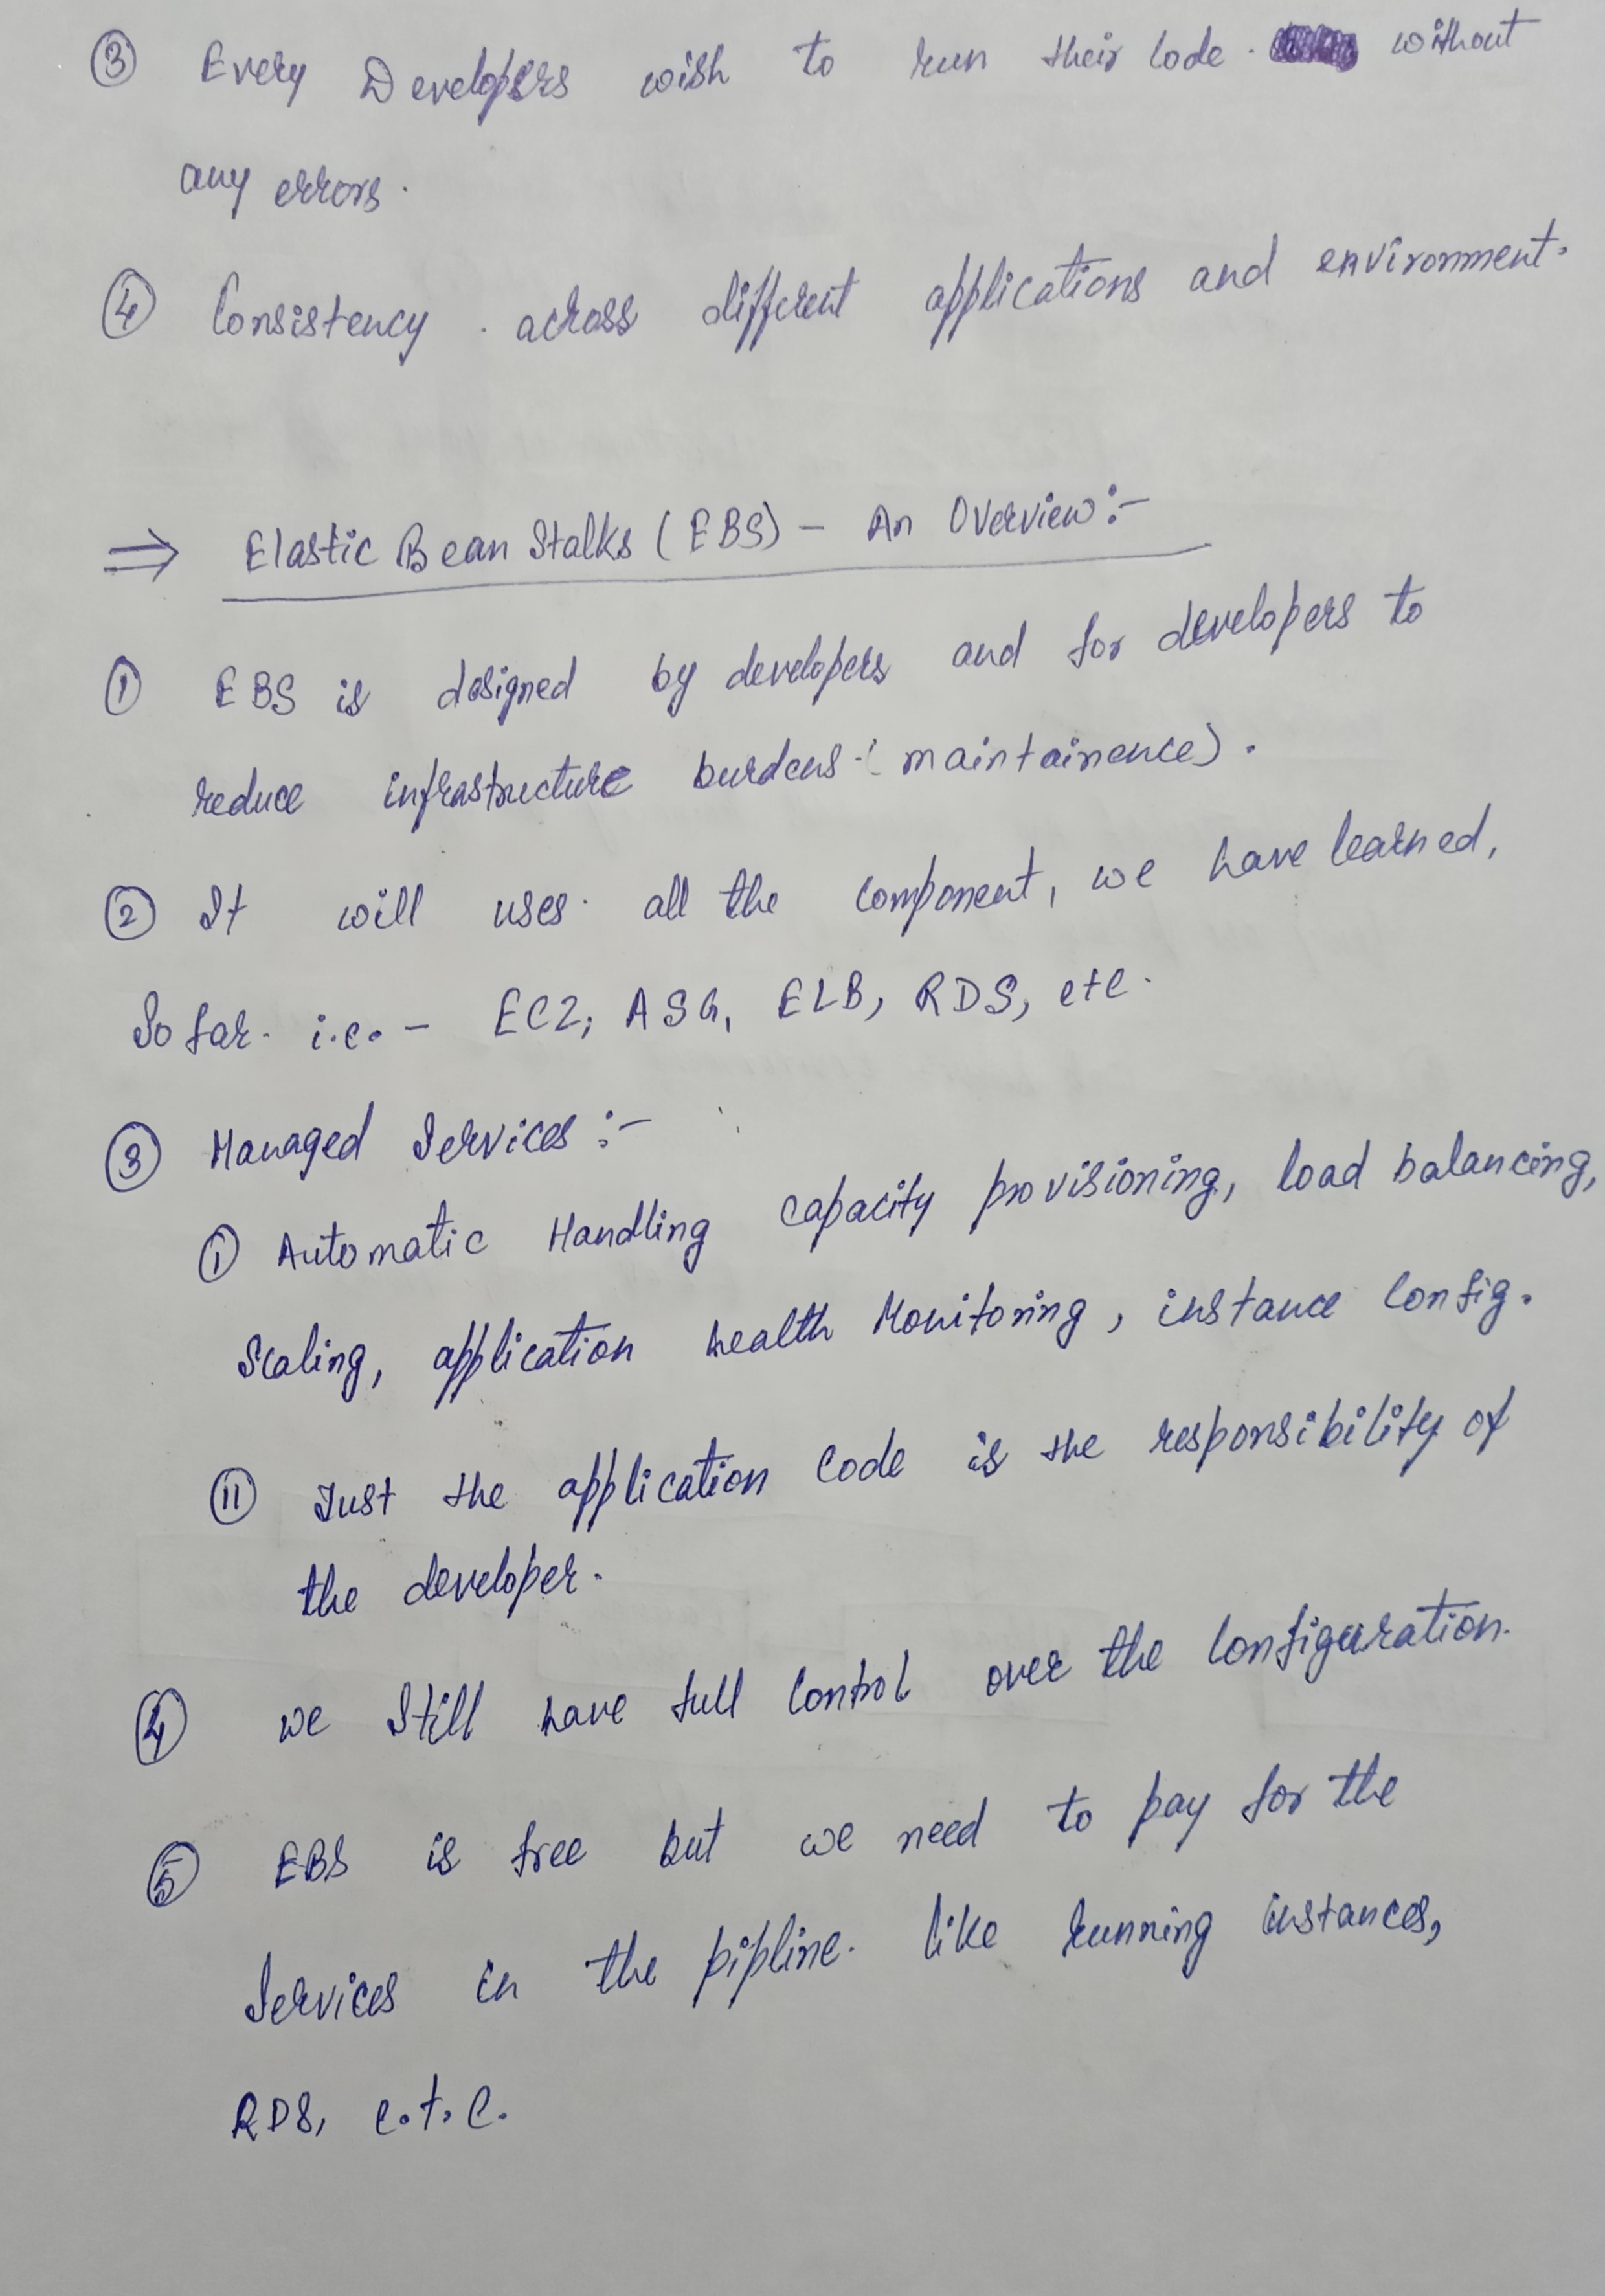 ③ Every Developers wish to run their Code. without
any errors.
④ Consistency. across different applications and environment.
⇒ Elastic Bean Stalks (EBS) - An Overview:-
① EBS is designed by developers and for developers to
reduce infrastructure burdens. (maintainence).
② It will uses. all the component, we have learned,
So far. i.e. - EC2, ASG, ELB, RDS, etc.
③ Managed Services:-
① Automatic Handling capacity provisioning, load balancing,
Scaling, application health Monitoring, instance Config.
⑪ Just the application Code is the responsibility of
the developer.
④ we Still have full Control over the Configuration.
⑤ EBS is free but we need to pay for the
Services in the pipline. like running instances,
RDS, e.t.c.